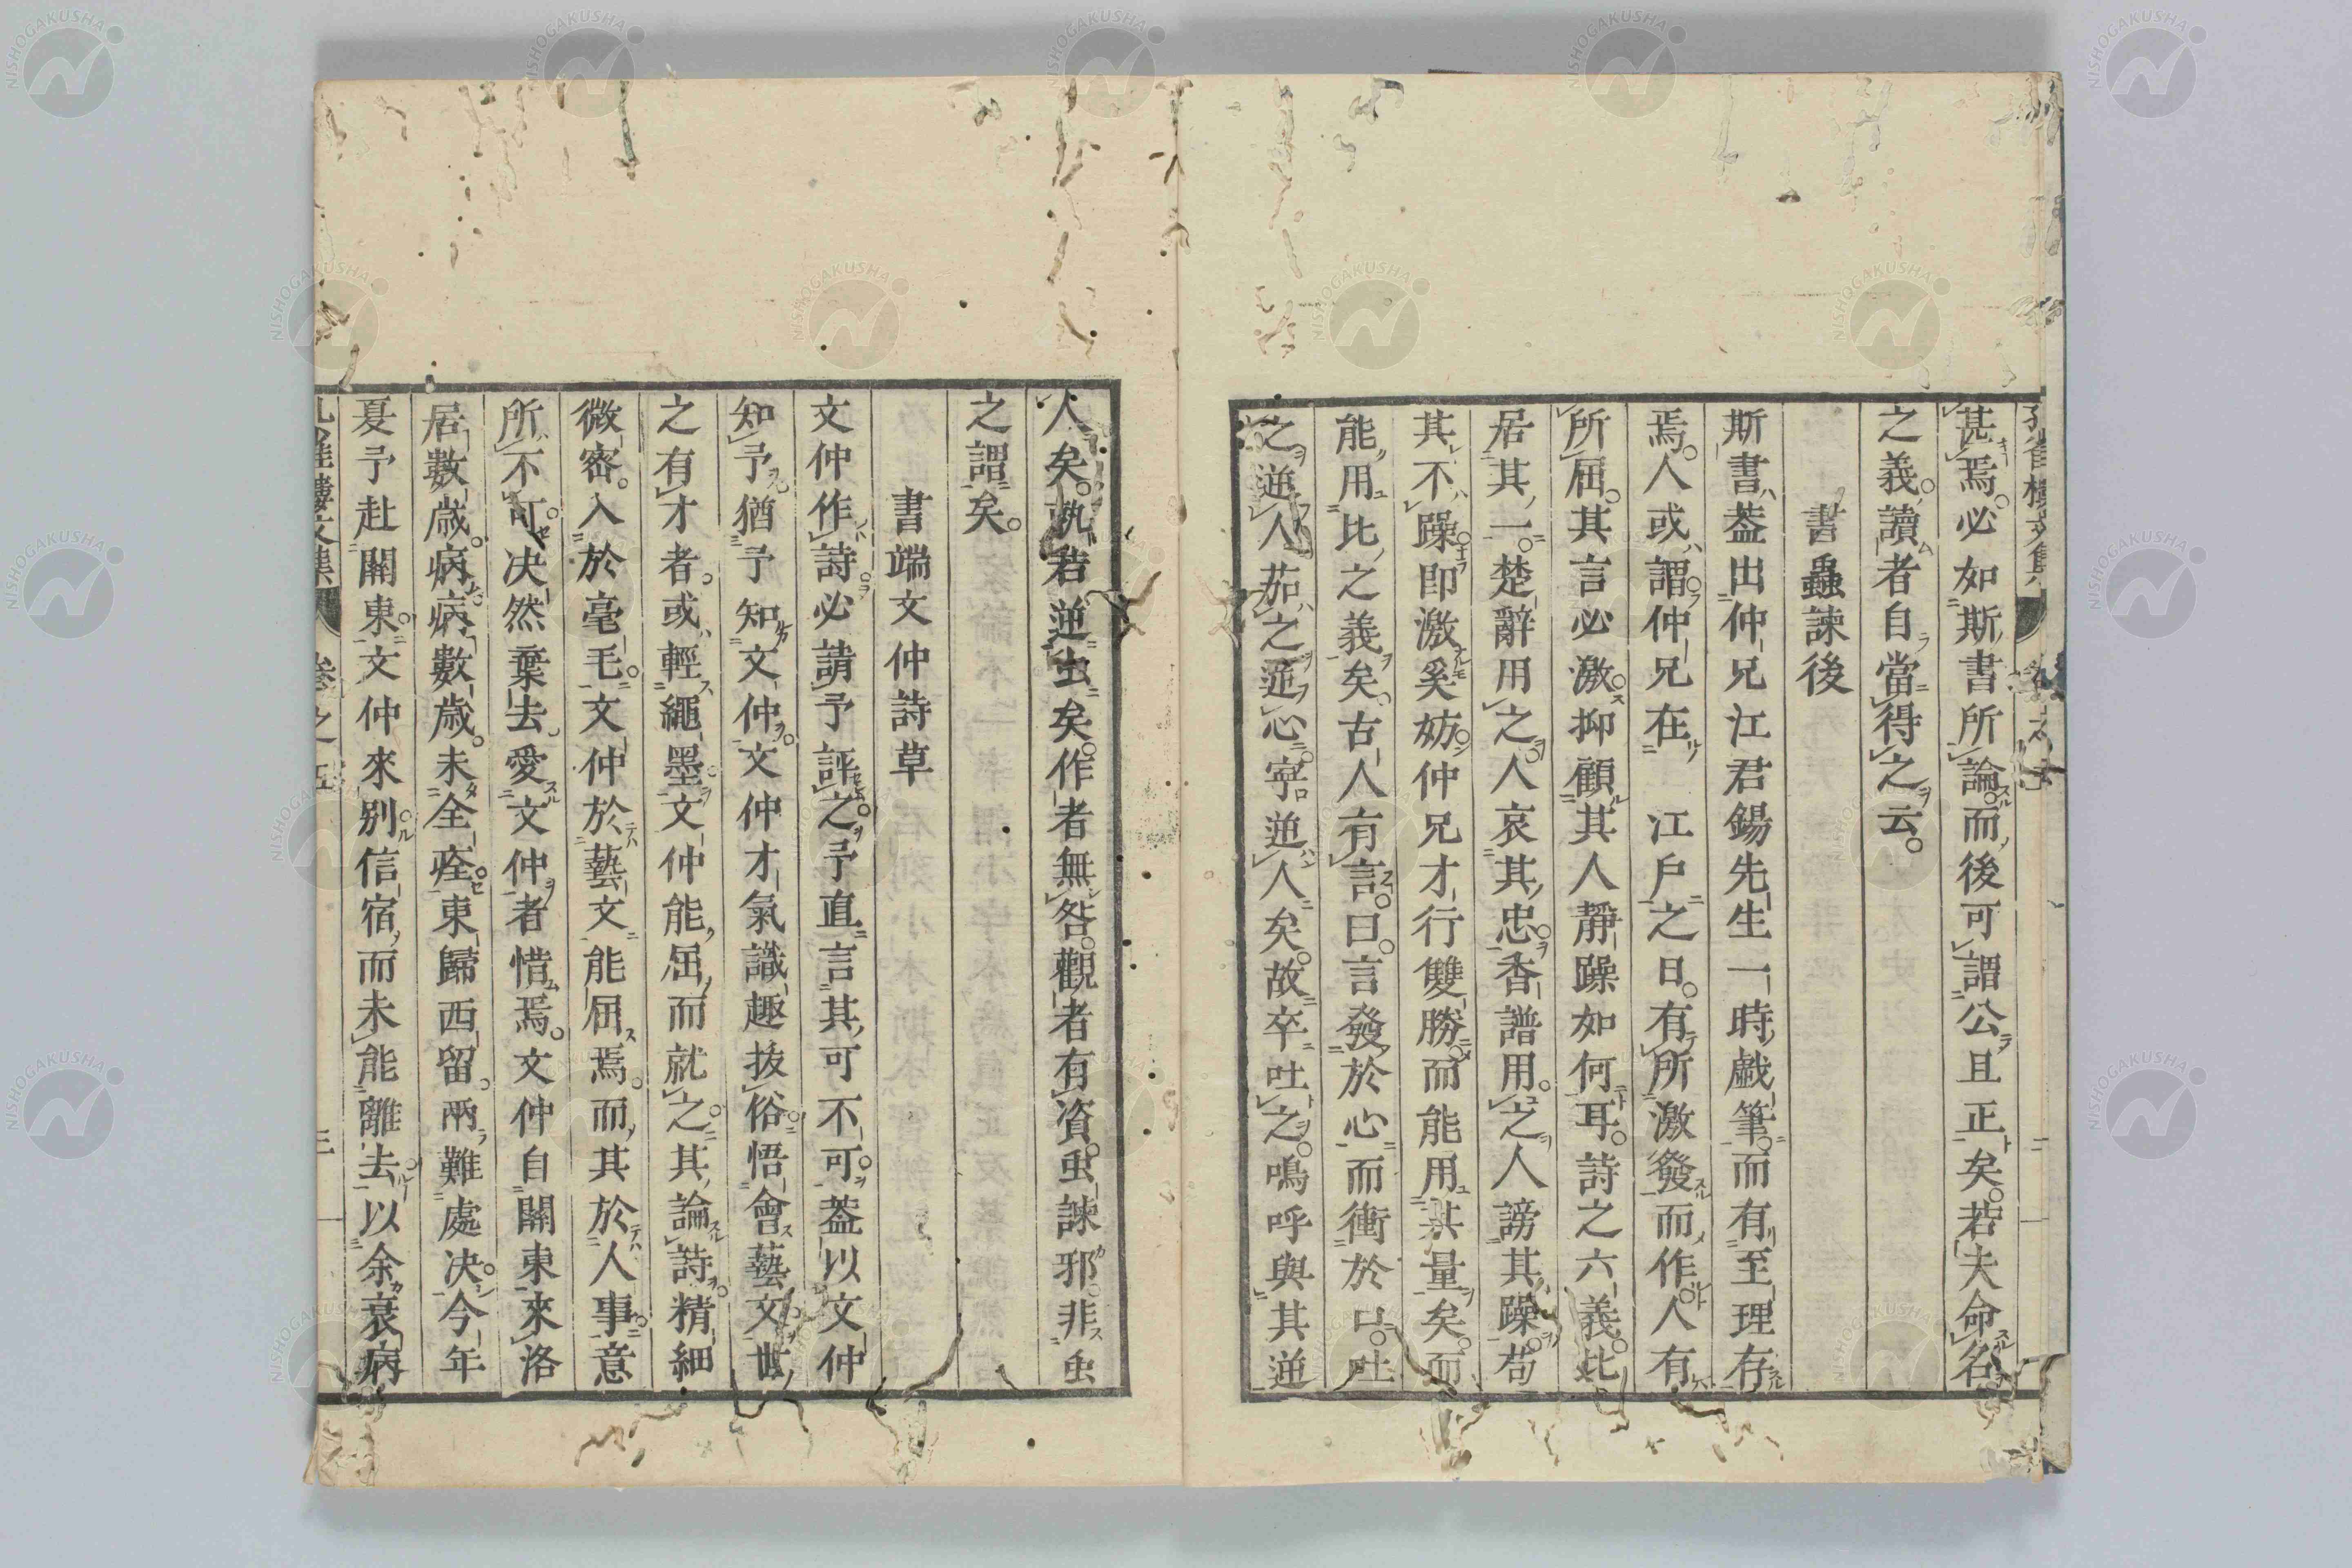 甚焉。必如斯書所論而後可謂公且正矣。若夫命名
之義。讀者自當得之云。
書蟲諫後
斯書葢出仲兄江君錫先生一時戯筆。而有至理存
焉。人或謂仲兄在江戶之日。有所激發而作。人有
所屈。其言必激。抑顧其人靜躁如何耳。詩之六義。比
居其一。楚辭用之。人哀其忠。香譜用之。人謗其躁。苟
其不躁。卽激奚妨。仲兄才行雙勝。而能用其量矣。而
能用比之義矣。古人有言。曰。言發於心而衝於口。吐
之逆人。茹之逆心。寧逆人矣。故卒吐之。嗚呼與其逆
人矣。孰若逆虫矣。作者無咎。觀者有資。虫諫邪。非虫
之謂矣。
書端文仲詩草
文仲作詩。必請予評之。予直言其可不可。葢以文仲
知予。猶予知文仲。文仲才氣識趣抜俗。悟會藝文。世
之有才者。或輕繩墨。文仲能屈而就之。其論詩。精細
微密。入於毫毛。文仲於藝文能屈焉。而其於人事意
所不可。决然棄去。愛文仲者惜焉。文仲自關東來洛
居數歳。病。病數歳。未全痊。東歸西留。兩難處决。今年
夏予赴關東。文仲來別。信宿而未能離去。以余衰病
孔雀樓文集 卷之五